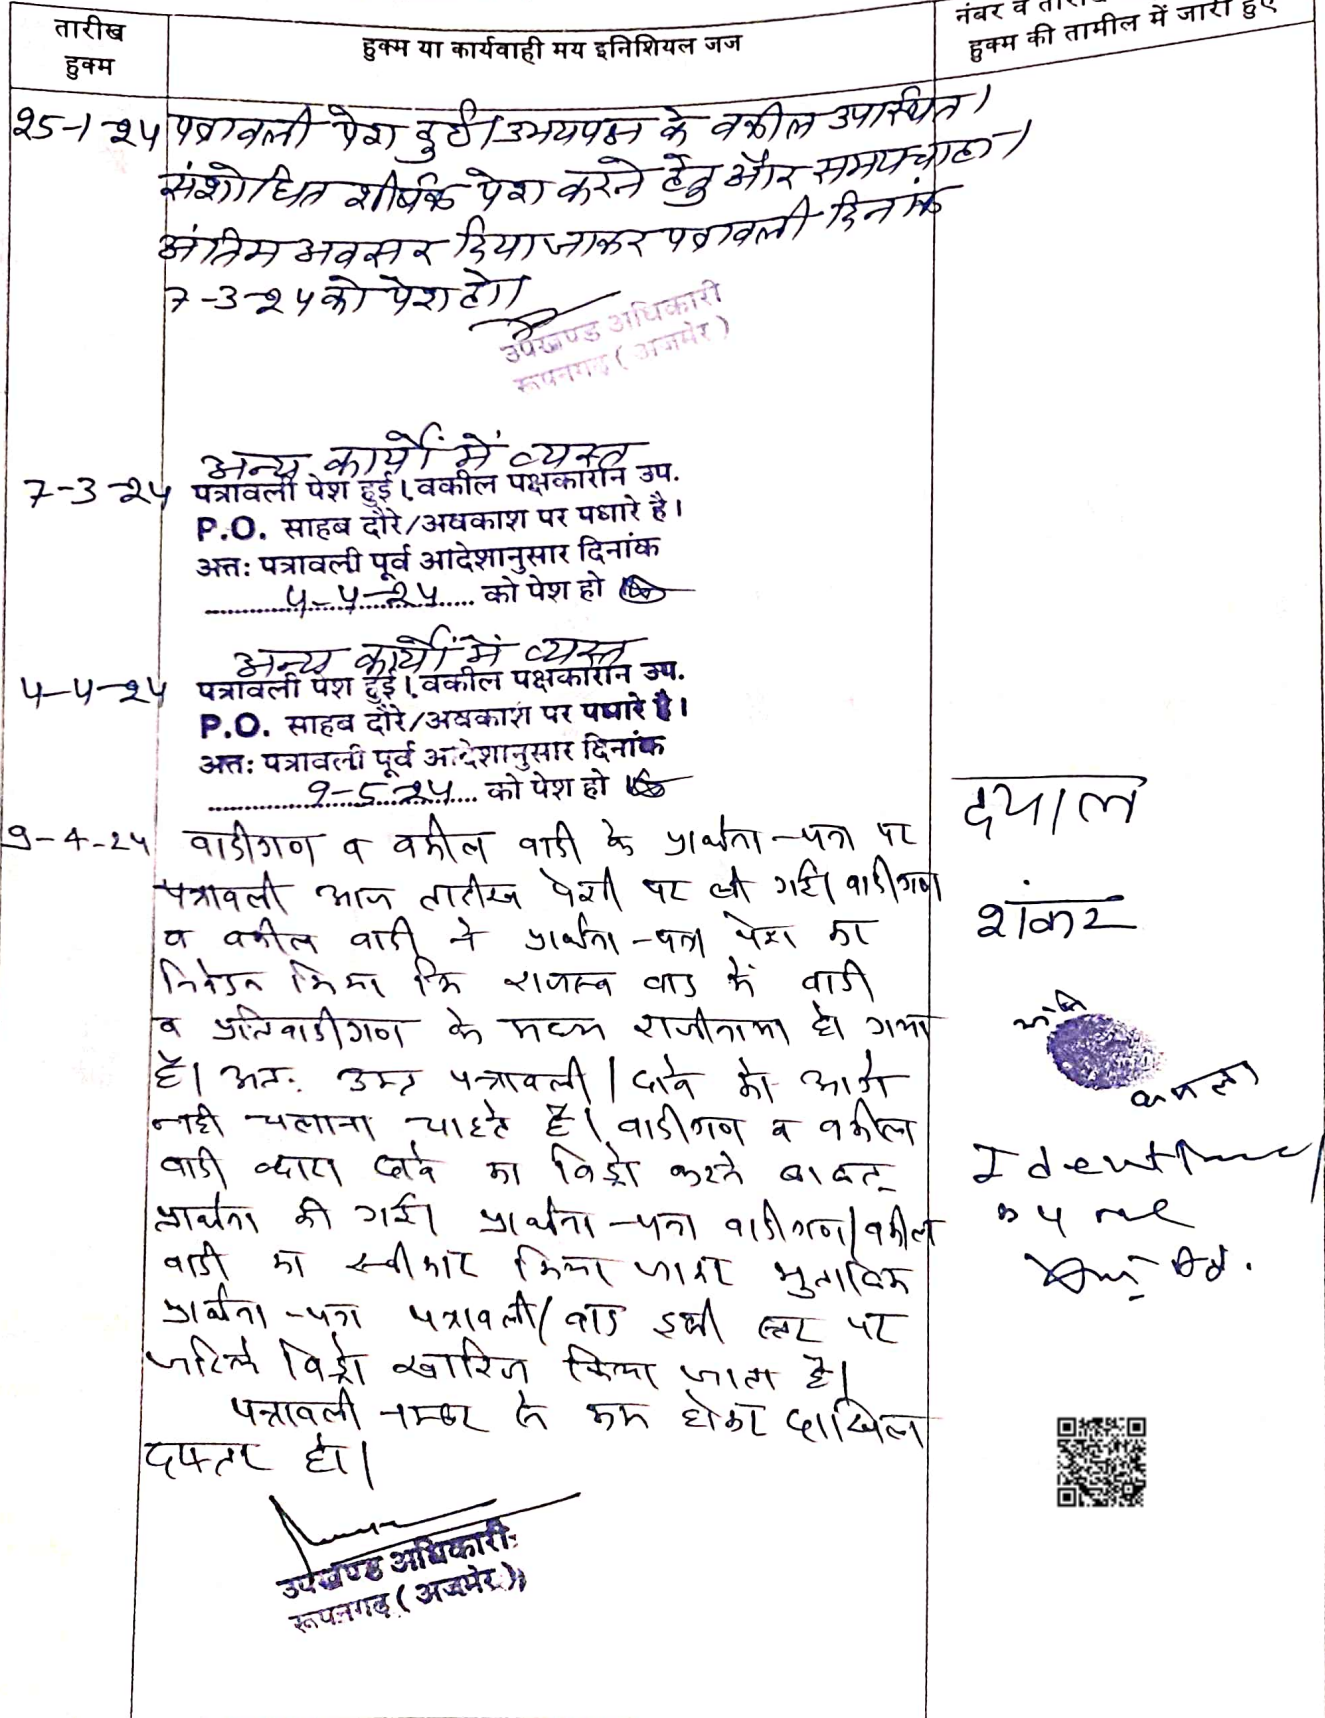 तारीख
हुक्म
हुक्म या कार्यवाही मय इनिशियल जज
नंबर व
हुक्म की तामील में जारी हुए
25-1-24 पत्रावली पेश हुई। उभयपक्ष के वकील उपस्थित।
संशोधित शीर्षक पेश करने हेतु और समय चाहा।
अंतिम अवसर दिया जाकर पत्रावली दिनांक
7-3-24 को पेश हो।
उपखण्ड अधिकारी
रूपनगढ़ (अजमेर)
अन्य कार्यों में व्यस्त
7-3-24 पत्रावली पेश हुई। वकील पक्षकारान उप.
P.O. साहब दौरे/अवकाश पर पधारे है।
अतः पत्रावली पूर्व आदेशानुसार दिनांक
4-4-24 को पेश हो
अन्य कार्यों में व्यस्त
4-4-24 पत्रावली पेश हुई। वकील पक्षकारान उप.
P.O. साहब दौरे/अवकाश पर पधारे है।
अतः पत्रावली पूर्व आदेशानुसार दिनांक
9-5-24 को पेश हो
9-4-24 वादीगण व वकील वादी के प्रार्थना-पत्र पर
पत्रावली आज तारीख पेशी पर ली गई। वादीगण
व वकील वादी ने प्रार्थना-पत्र पेश कर
निवेदन किया कि राजस्व वाद में वादी
व प्रतिवादीगण के मध्य राजीनामा हो गया
है। अतः उक्त पत्रावली/दावे को आगे
नही चलाना चाहते है। वादीगण व वकील
वादी व्दारा दावे का विड्रो करने बाबत्
प्रार्थना की गई। प्रार्थना-पत्र वादीगण/वकील
वादी का स्वीकार किया जाकर मुताबिक
प्रार्थना-पत्र पत्रावली/वाद इसी स्तर पर
जरिये विड्रो खारिज किया जाता है।
पत्रावली नम्बर से कम होकर दाखिल
दफ्तर हो।
उपखण्ड अधिकारी
रूपनगढ़ (अजमेर)
दयाल
शंकर
कमला
Identified
by me
Ad.